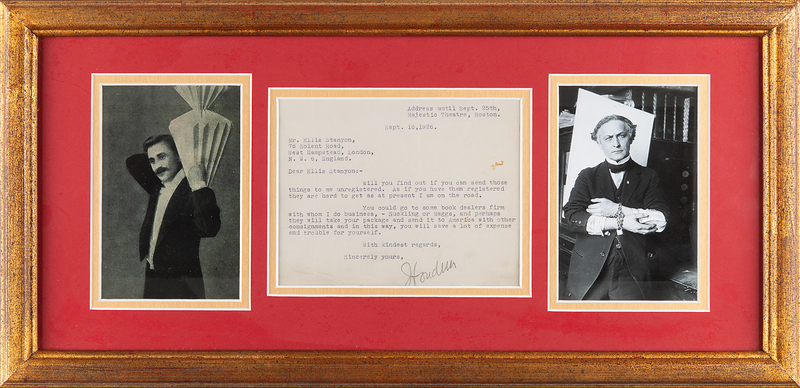 Address until Sept. 25th,
Majestic Theatre, Boston.
Sept. 16,1926.
Mr. Ellis Stanyon,
76 Solent Road,
West Hampstead, London,
N. W. 6, England.
Dear Ellis Stanyon:-
Will you find out if you can send those
things to me unregistered. As if you have them registered
they are hard to get as at present I am on the road.
You could go to some book dealers firm
with whom I do business, - Suckling or Maggs, and perhaps
they will take your package and send it to America with other
consignments and in this way, you will save a lot of expense
and trouble for yourself.
With kindest regards,
Sincerely yours,
Houdini